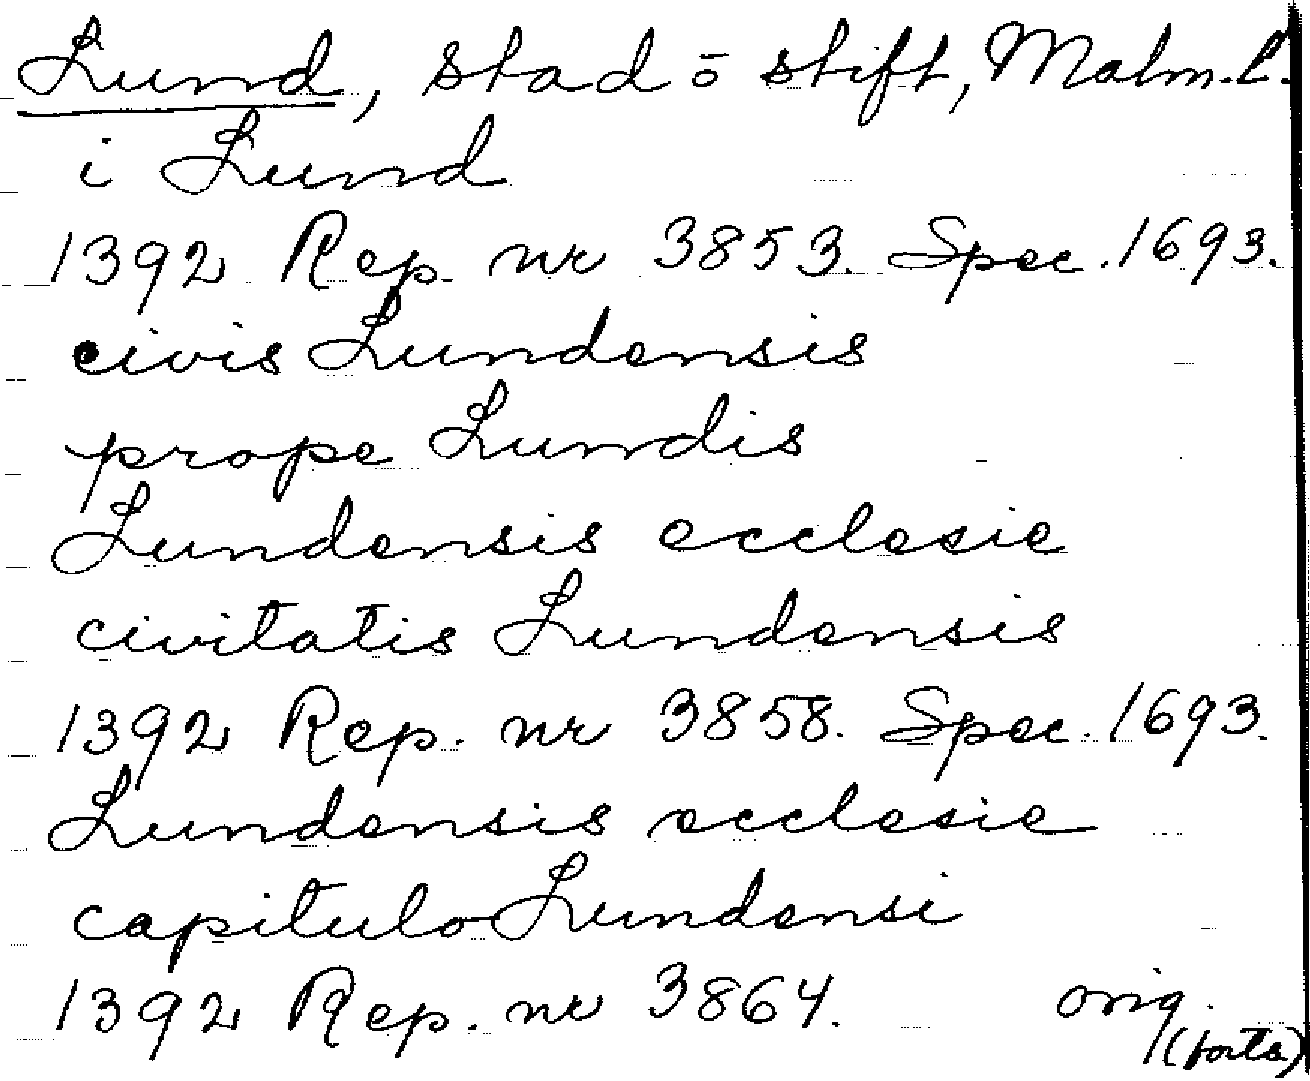 Lund, stad o stift, Malm.l.
i Lund
1392 Rep. nr 3853. Spec. 1693.
civis Lundensis
prope Lundis
Lundensis ecclesie
civitatis Lundensis
1392 Rep. nr 3858. Spec. 1693.
Lundensis ecclesie
capitulo Lundensi
1392 Rep. nr 3864. orig.
(forts)